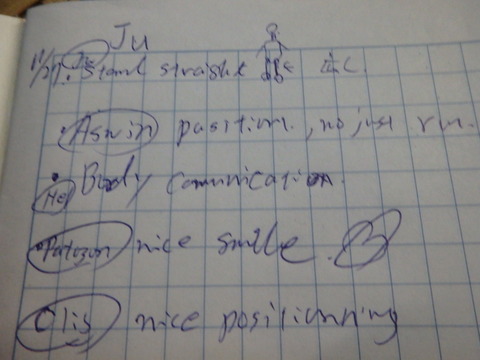 Ju
11/29. Stand straight
Aswin position, no just run.
He Body Comunication.
nice smile.
Olis nice positionning